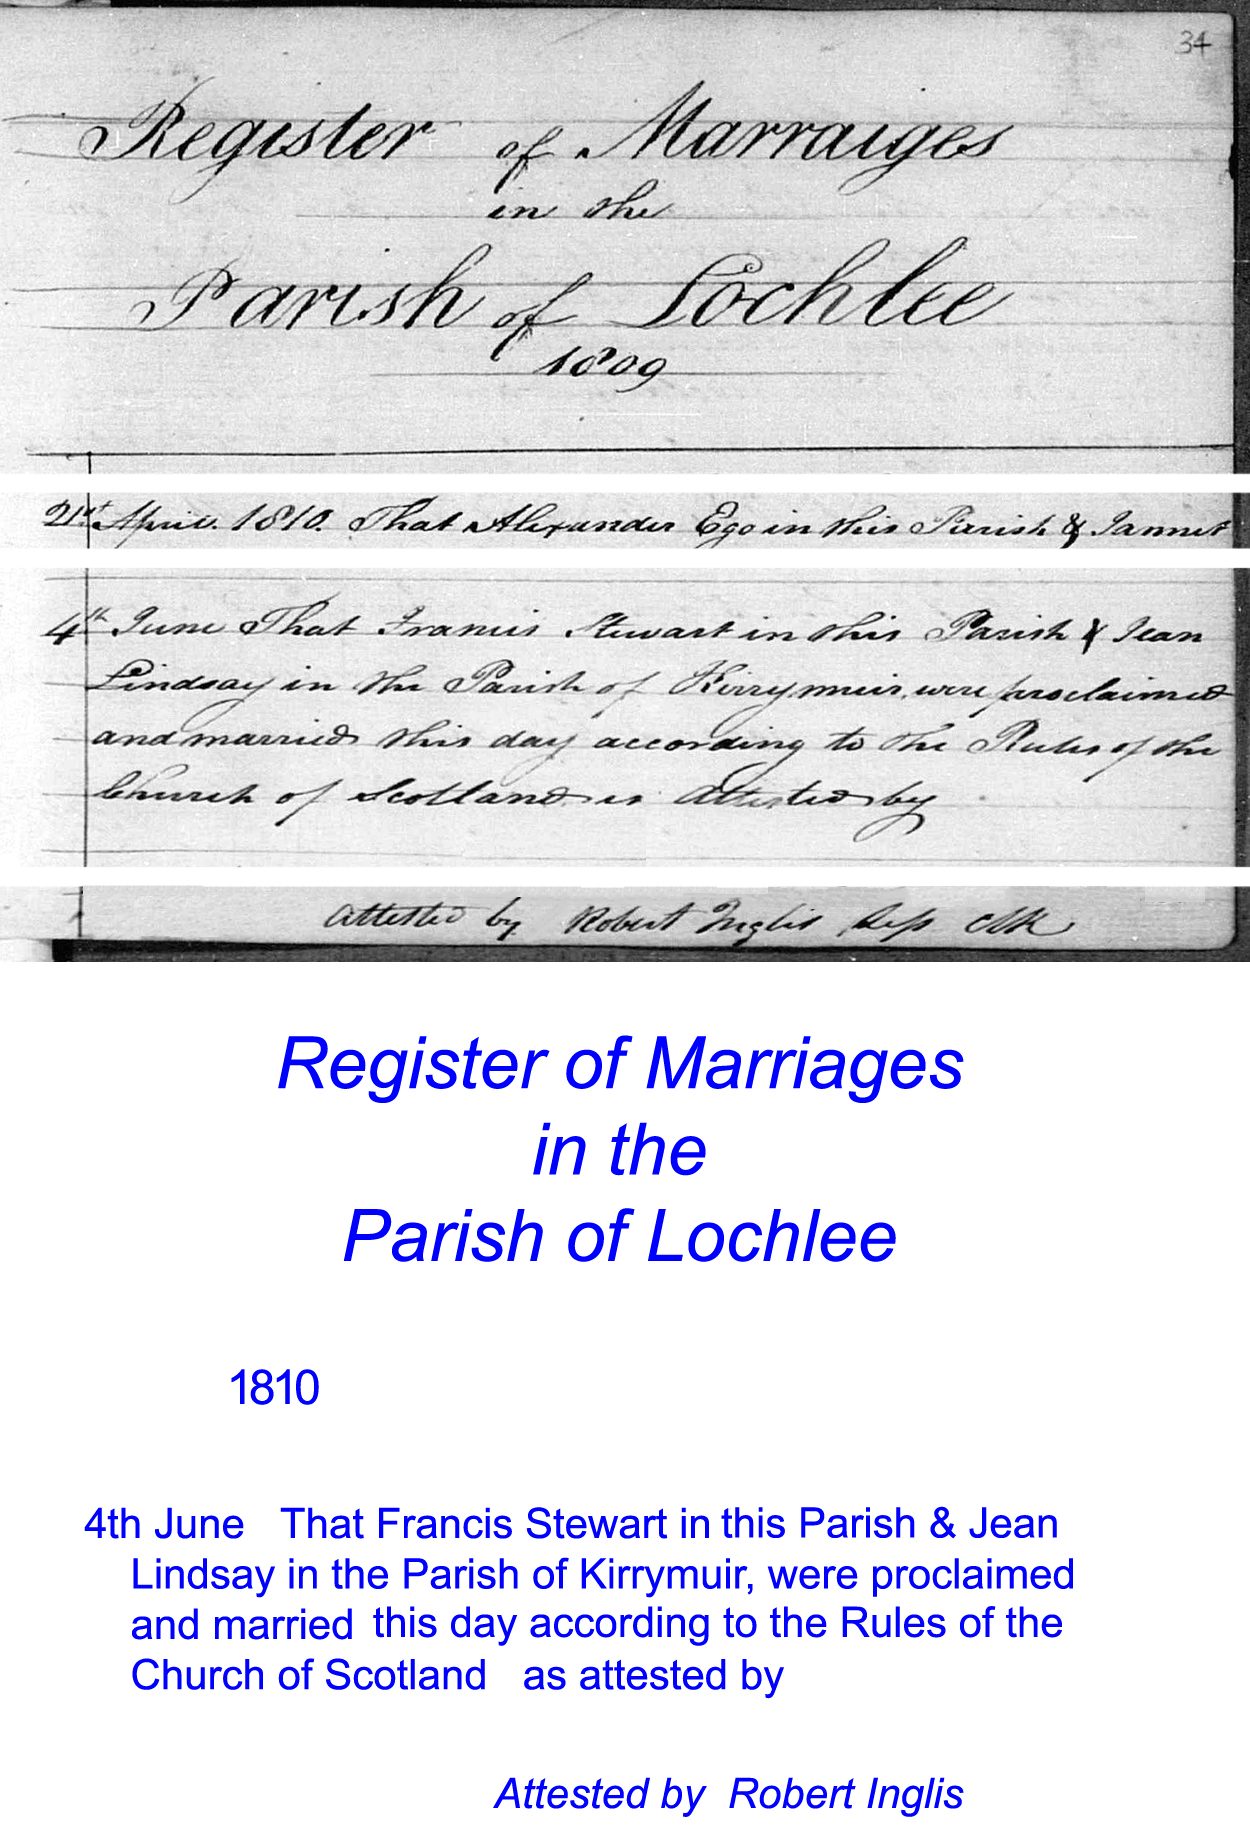 34
Register of Marraiges
in the
Parish of Lochlee
1809
21st April. 1810. That Alexander Ego in this Parish & Jannet
4th June That Francis Stewart in this Parish & Jean
Lindsay in the Parish of Kirrymuir, were proclaimed
and married this day according to the Rules of the
Church of Scotland is Attested by
Attested by Robert Inglis Sess Clk
Register of Marriages
in the
Parish of Lochlee
1810
4th June That Francis Stewart in this Parish & Jean
Lindsay in the Parish of Kirrymuir, were proclaimed
and married this day according to the Rules of the
Church of Scotland as attested by
Attested by Robert Inglis